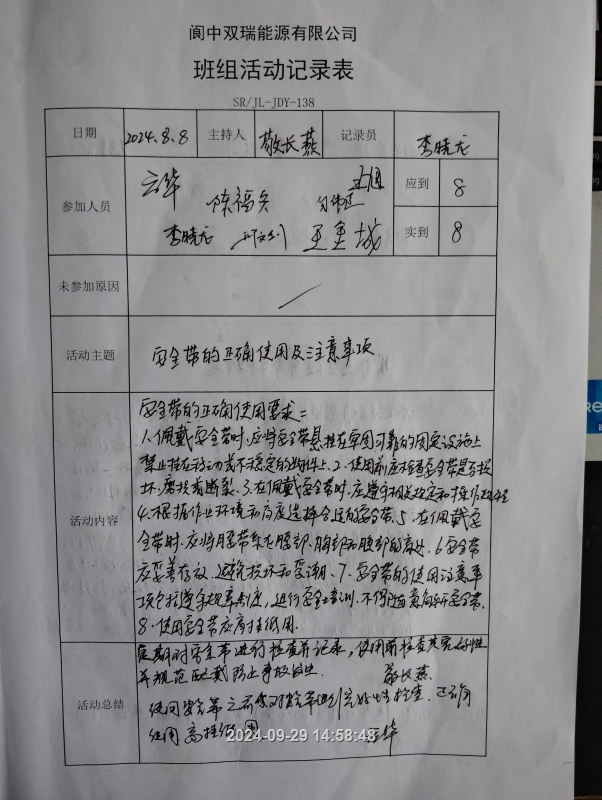 阆中双瑞能源有限公司
班组活动记录表
SR/JL-JDY-138
日期 2024.8.8 主持人 敬长燕 记录员 李晓龙
参加人员
应到 8
李晓龙 王金城
实到 8
未参加原因 /
活动主题 安全带的正确使用及注意事项
活动内容
安全带的正确使用要求:
1、佩戴安全带时,应将安全带悬挂在牢固可靠的固定设施上
禁止挂在移动或不稳定的物件上.2、使用前应检查安全带是否损
坏、磨损或断裂.3、在佩戴安全带时,应遵守相关规定和操作规程
4、根据作业环境和高度选择合适的安全带.5、在佩戴安
全带时,应将腰带系在腰部、胸部和腿部的 6、安全带
应妥善存放,避免损坏和受潮.7、安全带的使用注意事
项包括遵守规章制度,进行安全培训、不得随意 安全带.
8、使用安全带应高挂低用.
活动总结
定期对安全带进行检查并记录,使用前检查其完好性
并规范配戴防止事故发生.
敬长燕
使用安全带之前 对安全带进行完好性检查.正确
使用高挂低用
2024-09-29 14:58:48